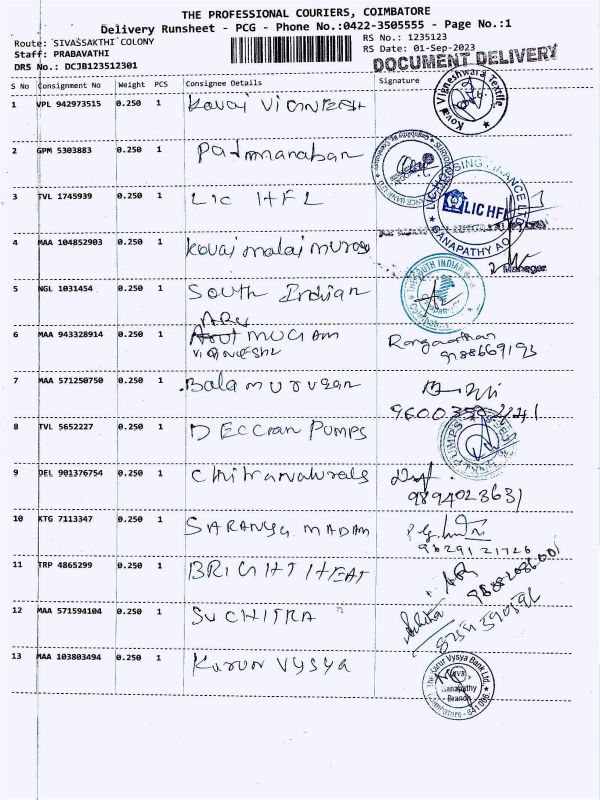 THE PROFESSIONAL COURIERS, COIMBATORE
Delivery Runsheet - PCG - Phone No.:0422-3505555 - Page No.:1
Route: SIVASSAKTHI COLONY
RS No.: 1235123
Staff: PRABAVATHI
RS Date: 01-Sep-2023
DRS No.: DCJB123512301
DOCUMENT DELIVERY
S No Consignment No Weight PCS Consignee Details Signature
1 VPL 942973515 0.250 1 Kovai Vignesh
Kovai Vigneshwara Textile
2 GPM 5303883 0.250 1 Padmanaban
3 TVL 1745939 0.250 1 LIC HFL
LIC HFL
GANAPATHY AO
4 MAA 104852903 0.250 1 Kovai malai murugu
Manager
5 NGL 1031454 0.250 1 South Indian
SOUTH INDIAN
6 MAA 943328914 0.250 1 MUGAM
VIGNESH
Ranganathan
7 MAA 571250750 0.250 1 Balamurugan
8 TVL 5652227 0.250 1 DECCan PUMPS
PUMPS
9 DEL 901376754 0.250 1 Chitranaturals
9894023631
10 KTG 7113347 0.250 1 SARANYA MADAM
9629121726
11 TRP 4865299 0.250 1 BRIGHT HEAT
12 MAA 571594104 0.250 1 SUCHITRA
13 MAA 103803494 0.250 1 Karur VYSYA
The Karur Vysya Bank Ltd.,
Ganapathy
Branch
Coimbatore - 641 006